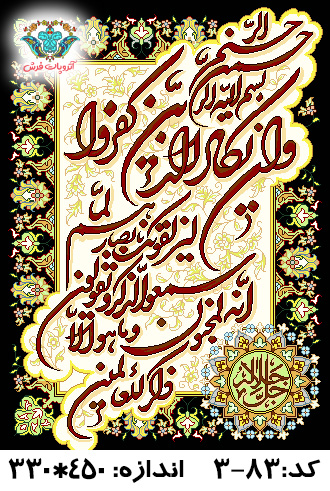 آتروپات فرش
بسم الله الرحمن الرحیم
وان یکاد الذین کفروا
لیزلقونک بابصارهم لما
سمعوا الذکر و یقولون
انه لمجنون وما هو الا
ذکر للعالمین
جل جلاله
کد:۸۳-۳ اندازه: ۴۵۰*۳۳۰